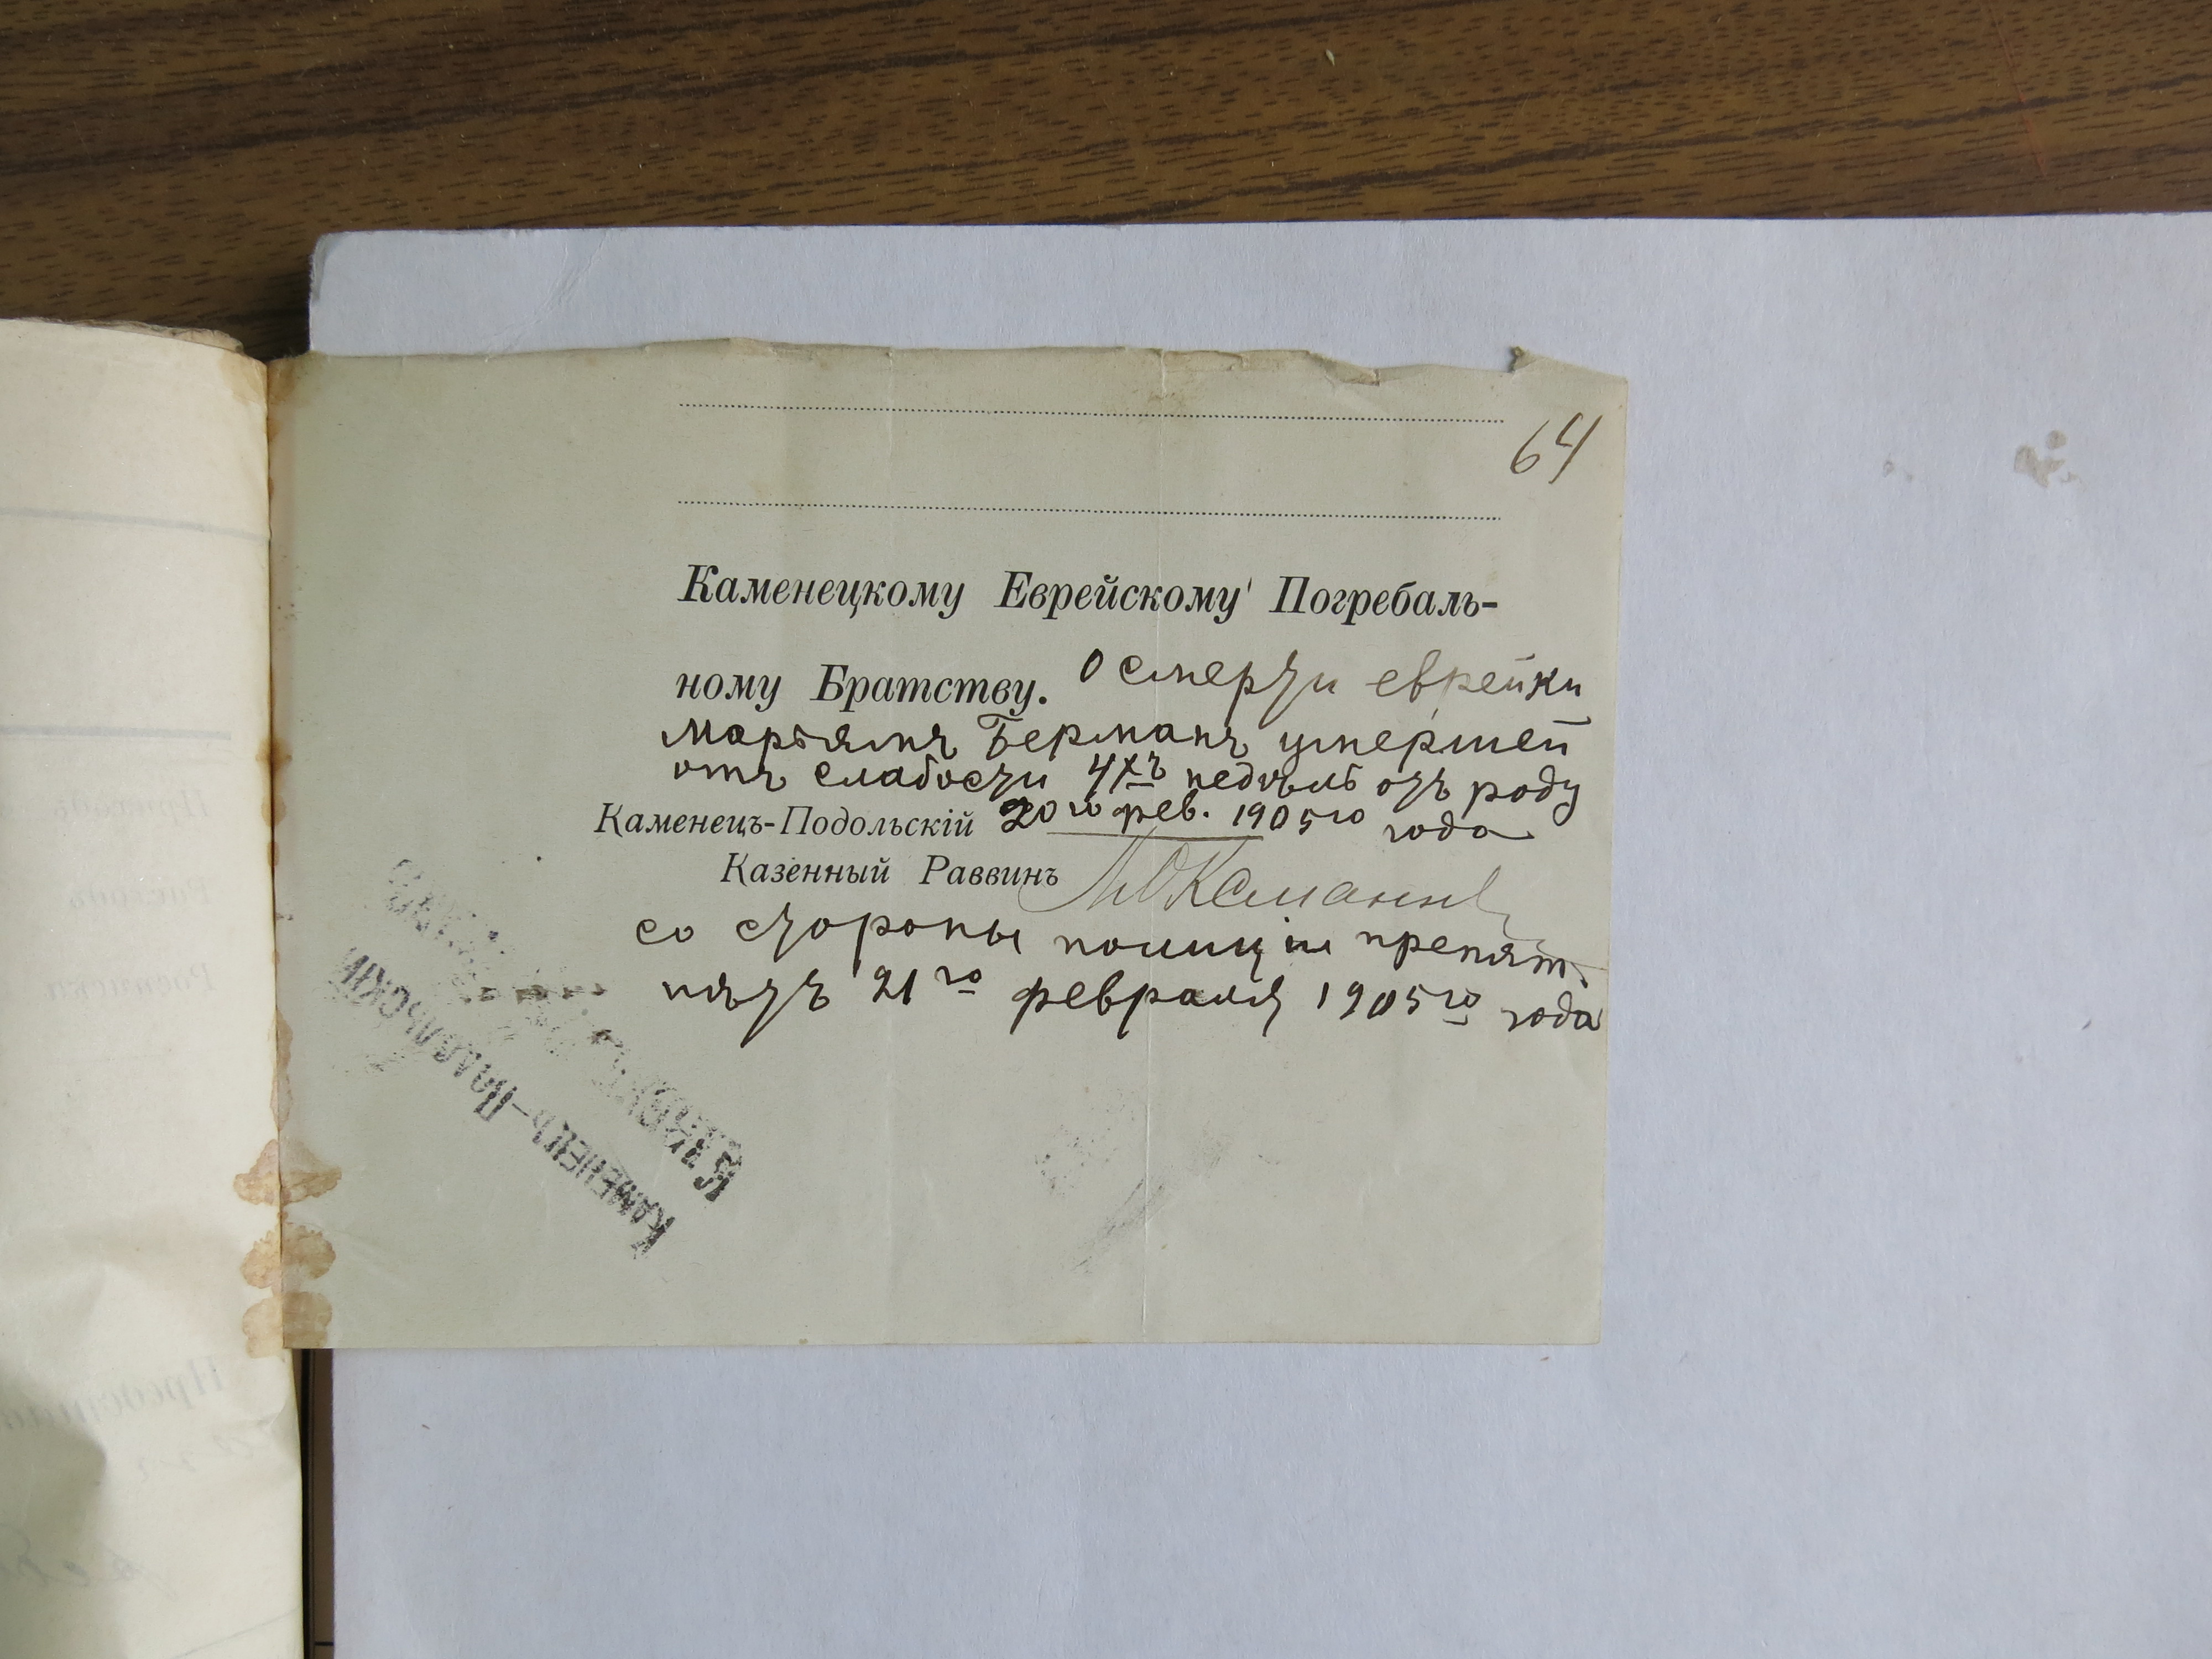 64
Каменецкому Еврейскому Погребаль-
ному Братству. О смерти еврейки
Марьямъ Берманъ умершей
отъ слабости 4хъ недѣль отъ роду
Каменецъ-Подольскій 20го фев. 1905го года
Казенный Раввинъ
со стороны полиціи препят.
нѣтъ 21го февраля 1905го года
Каменецъ-Подольскій